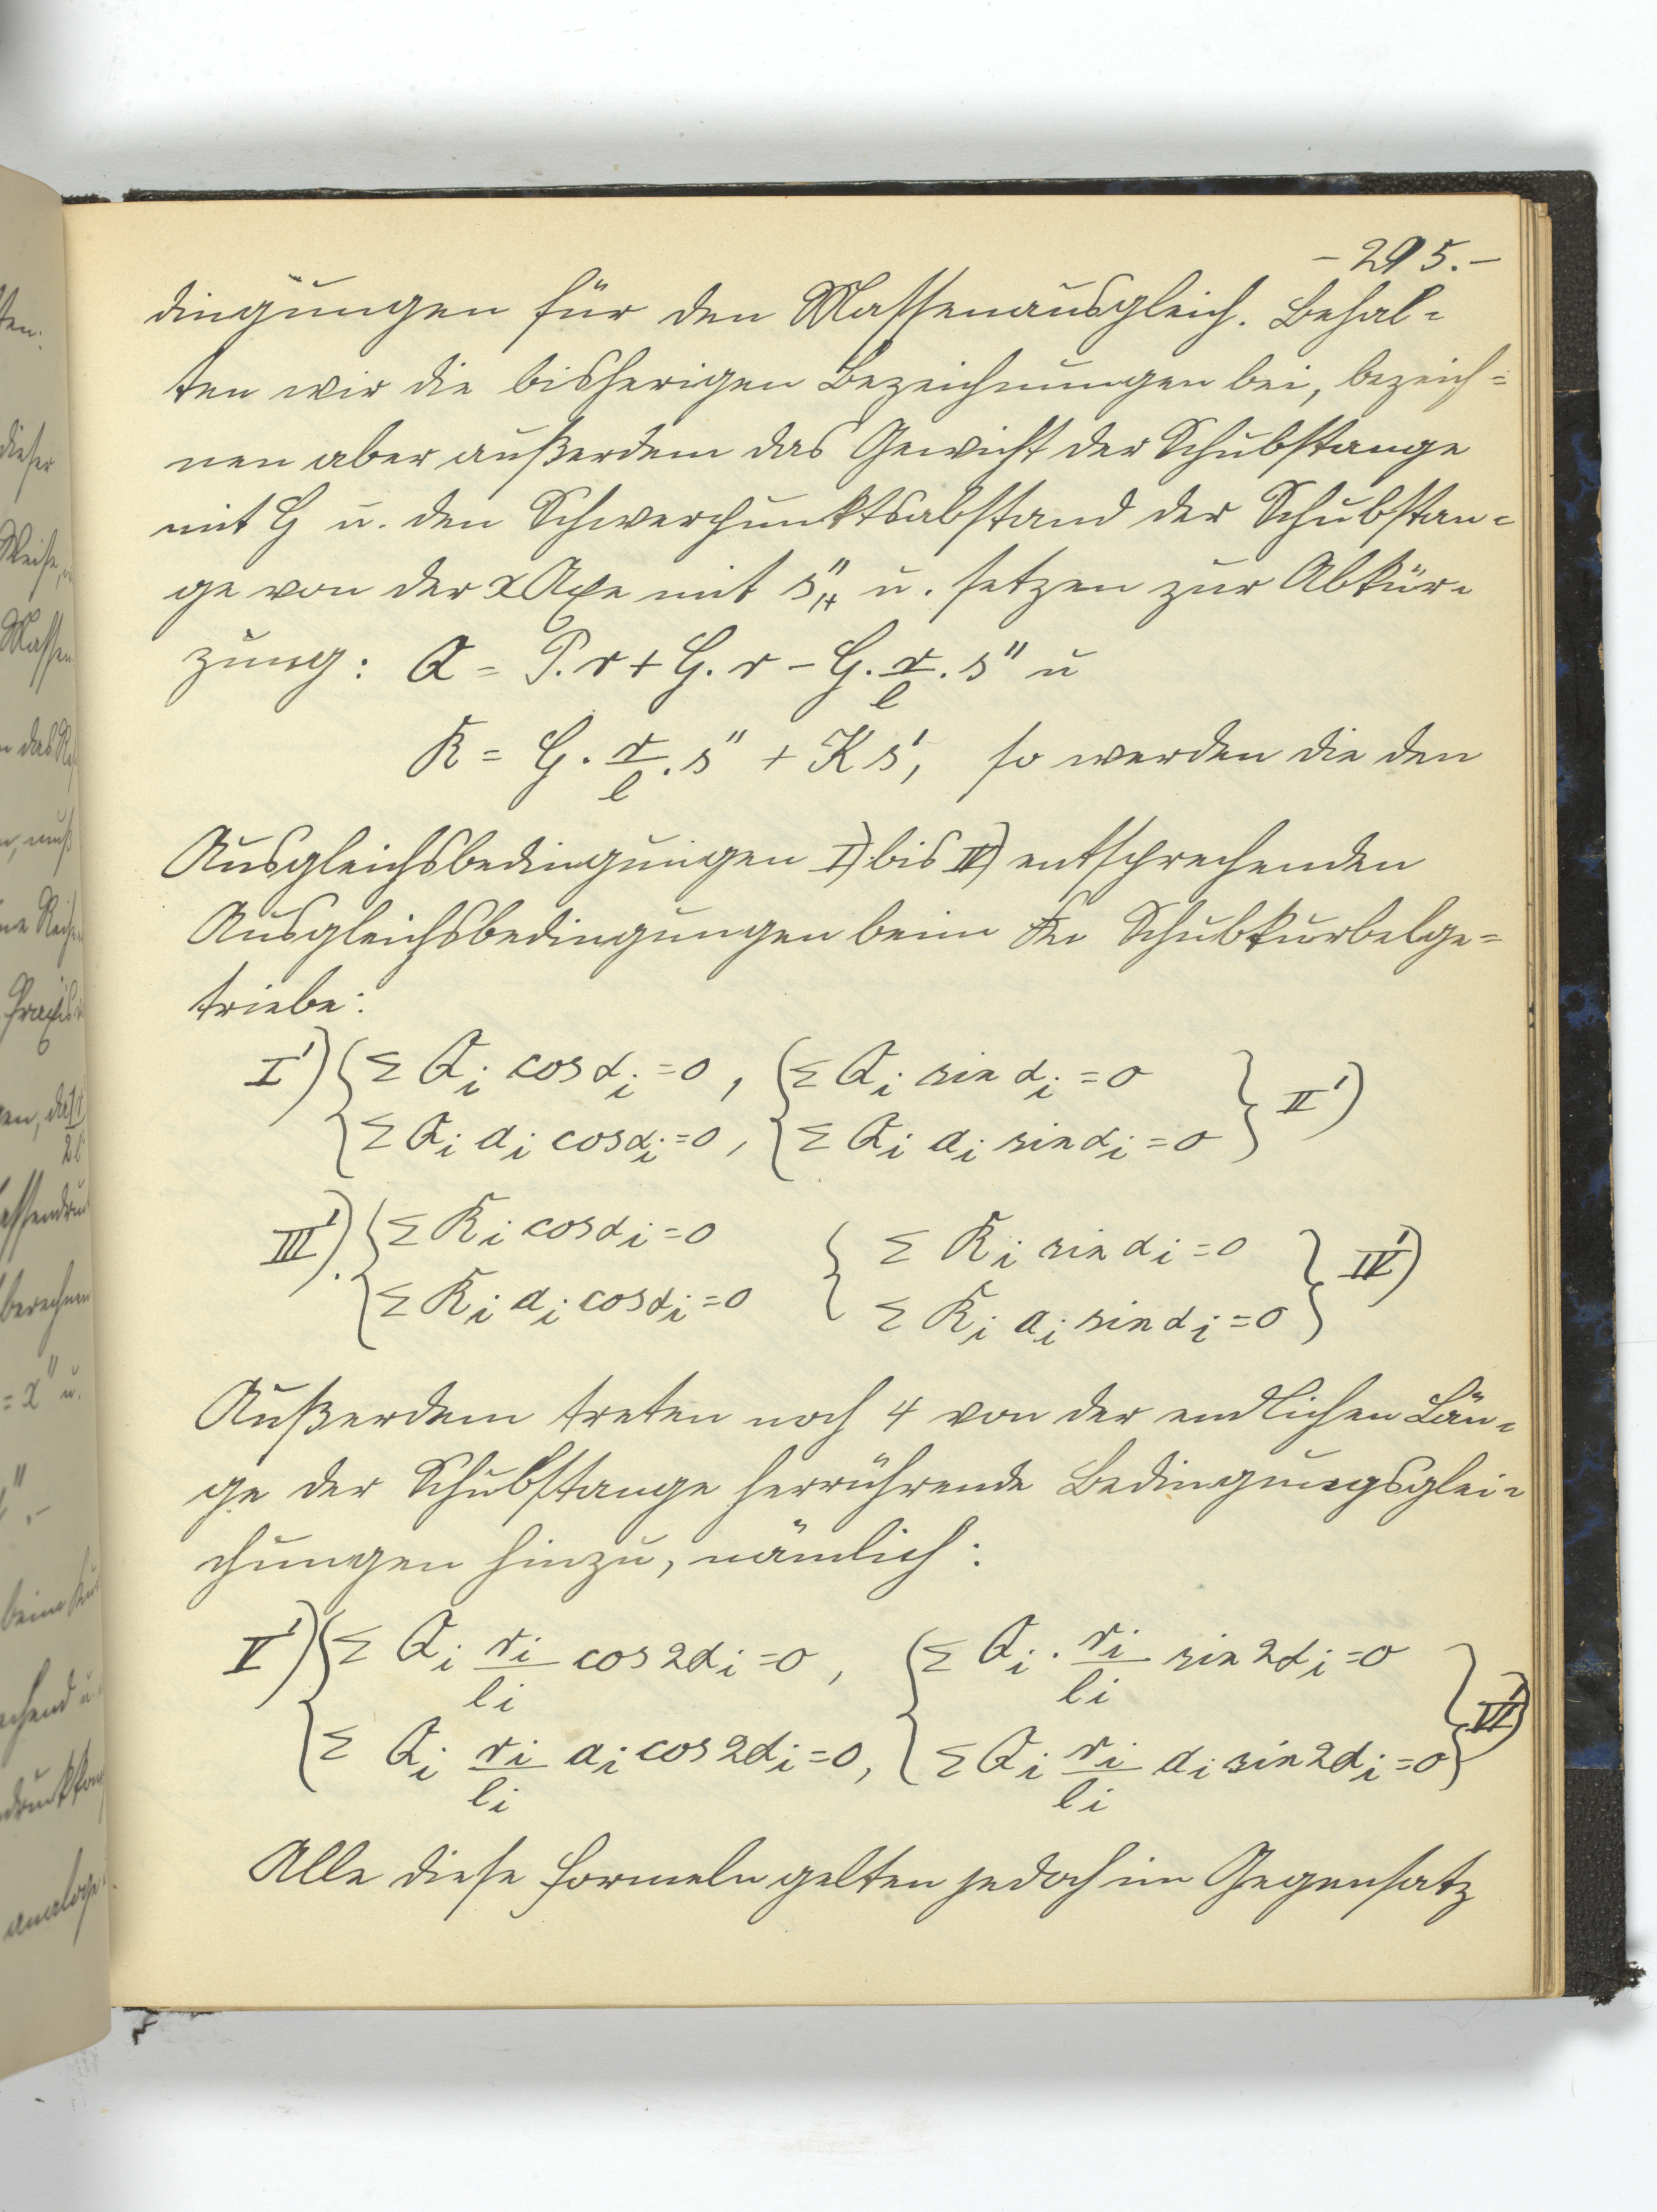 - 295. -
dingungen für den Massenausgleich. Behal=
ten wir die bisherigen Bezeichnungen bei, bezeich=
nen aber außerdem das Gewicht der Schubstange
mit G u. den Schwerpunktsabstand der Schubstan=
ge von der x Axe mit s" u. setzen zur Abkür=
zung: Q = P. r + G. r - G. r/l . s" u
R = G. r/l . s" + K s', so werden die den
Ausgleichsbedingungen I) bis IV) entsprechenden
Ausgleichsbedingungen beim Schubkurbelge=
triebe:
I') { Σ Qi cos αi = 0, { Σ Qi sin αi = 0 } II')
{ Σ Qi ai cos αi = 0, { Σ Qi ai sin αi = 0 }
III') { Σ Ri cos αi = 0 { Σ Ri sin αi = 0 } IV')
{ Σ Ri ai cos αi = 0 { Σ Ri ai sin αi = 0 }
Außerdem treten noch 4 von der endlichen Län=
ge der Schubstange herrührende Bedingungsglei=
chungen hinzu, nämlich:
V') { Σ Qi ri/li cos 2αi = 0, { Σ Qi . ri/li sin 2αi = 0 } VI')
{ Σ Qi ri/li ai cos 2αi = 0, { Σ Qi ri/li ai sin 2αi = 0 }
Alle diese Formeln gelten jedoch im Gegensatz